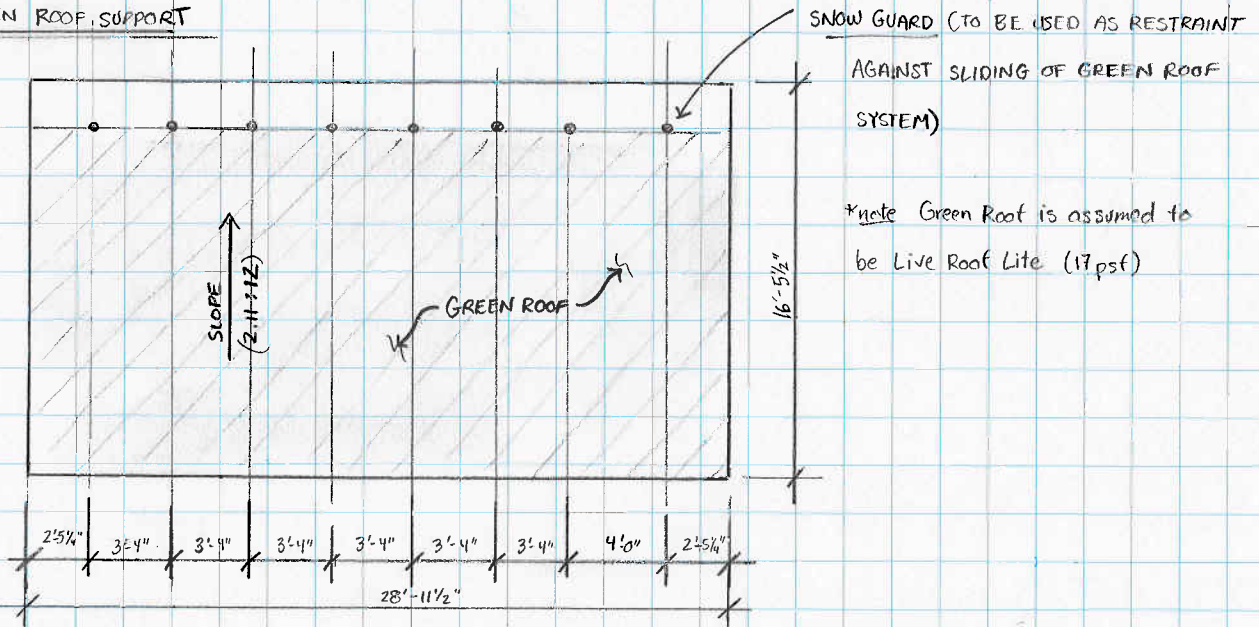 N ROOF SUPPORT
SNOW GUARD (TO BE USED AS RESTRAINT
AGAINST SLIDING OF GREEN ROOF
SYSTEM)
*note Green Roof is assumed to
be Live Roof Lite (17 psf)
SLOPE
(2.11:12)
GREEN ROOF
16'-5½"
2'5¼"
3'-4"
3'-4"
3'-4"
3'-4"
3'-4"
3'-4"
4'0"
2'-5¼"
28'-11½"